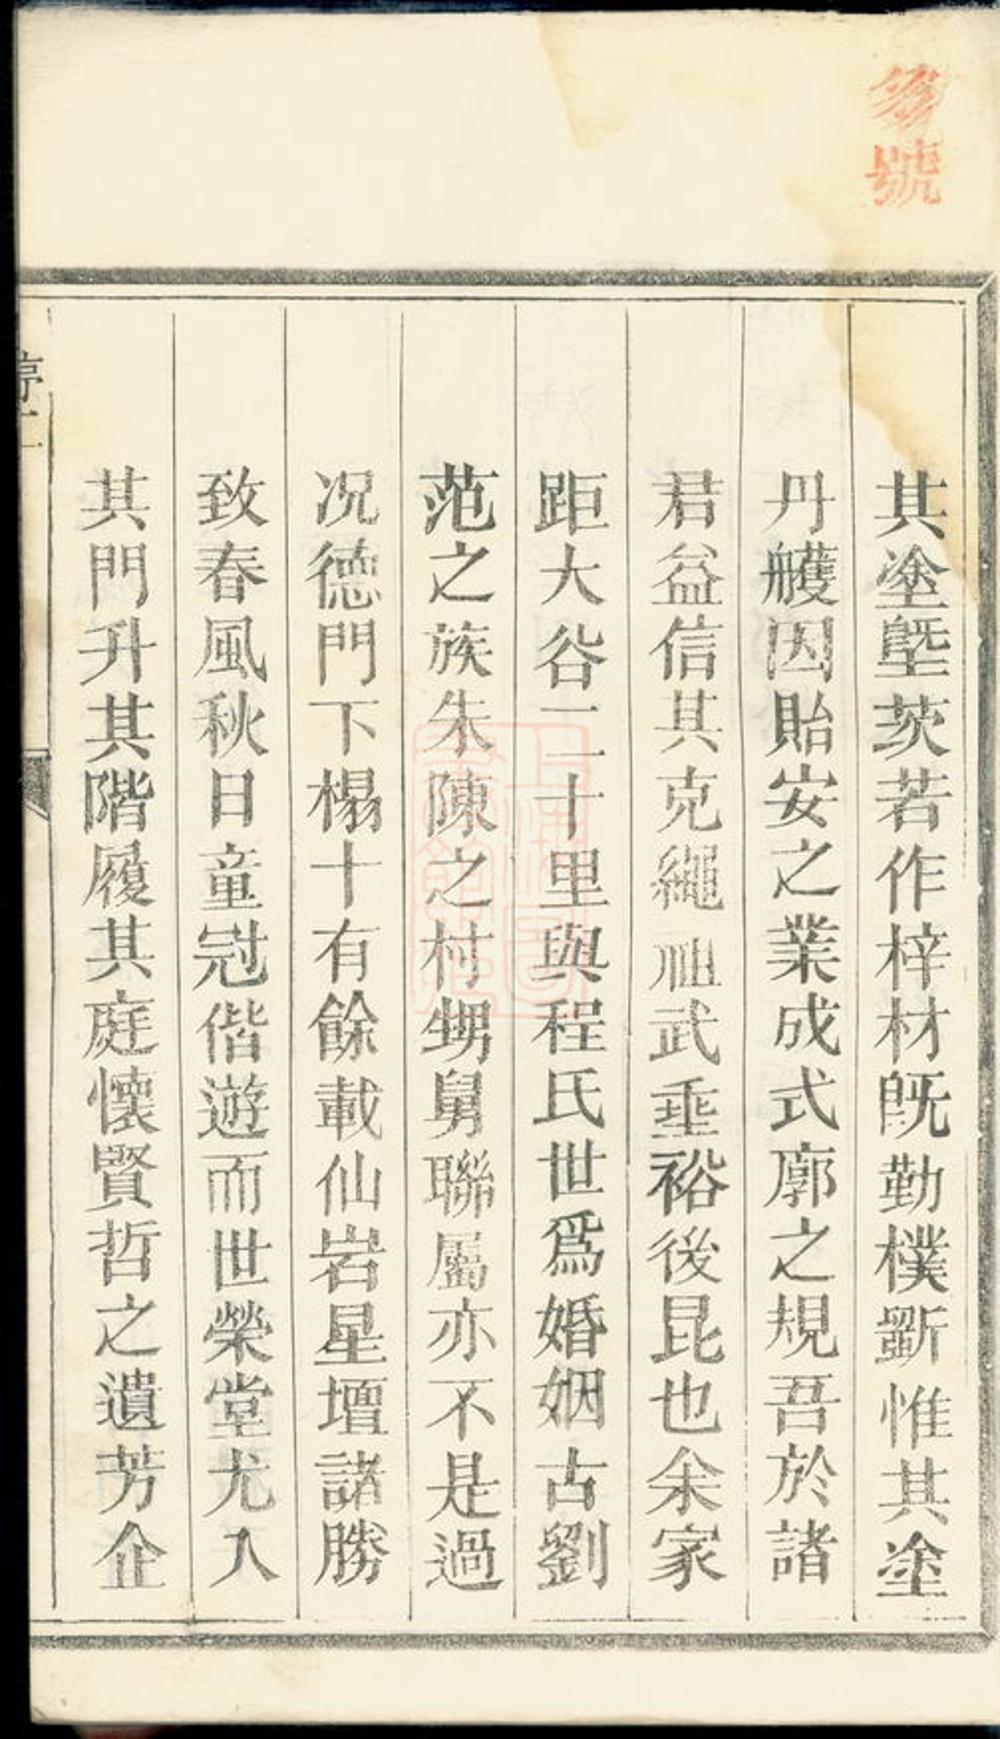 號
其塗墍茨若作梓材旣勤樸斵惟其塗
丹雘因貽安之業成式廓之規吾於諸
君益信其克繩祖武垂裕後昆也余家
距大谷二十里與程氏世爲婚姻古劉
范之族朱陳之村甥舅聯屬亦不是過
况德門下榻十有餘載仙岩星壇諸勝
致春風秋日童冠偕遊而世榮堂尤入
其門升其階履其庭懷賢哲之遺芳企